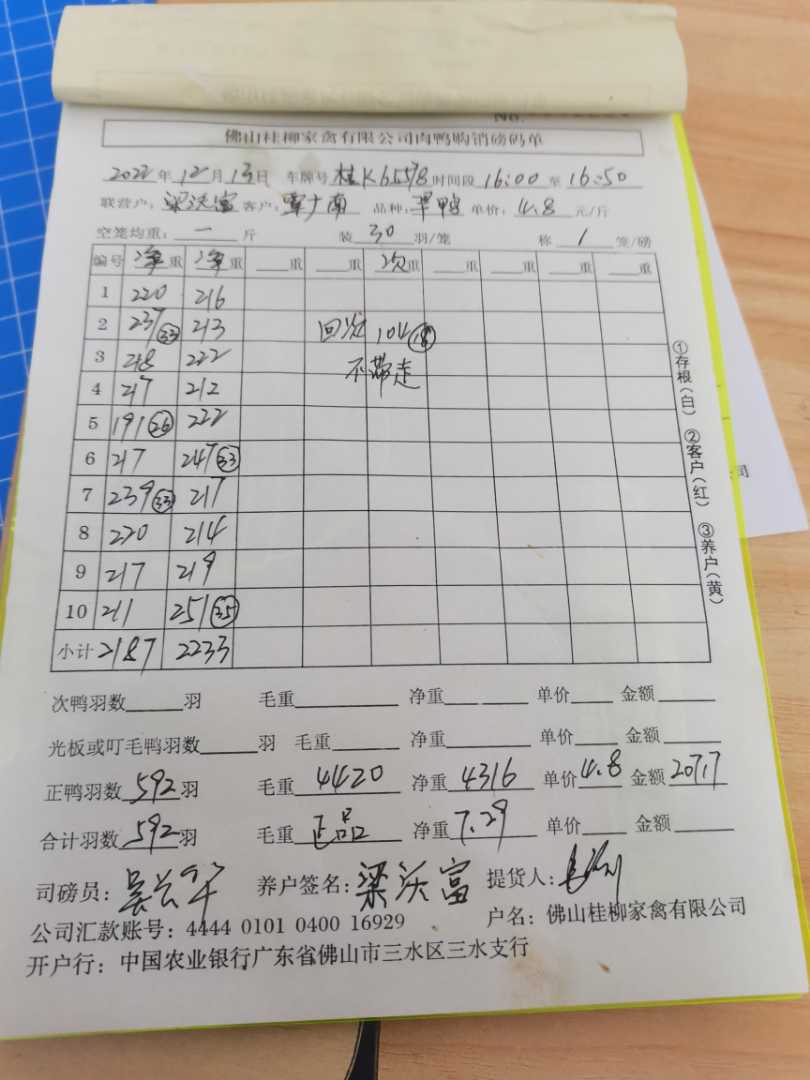 No.
佛山桂柳家禽有限公司肉鸭购销磅码单
2022年12月13日 车牌号桂K65578时间段16:00至16:50
联营户:梁沃富 客户:覃广南 品种: 单价:4.8元/斤
空笼均重:一斤 装30羽/笼 称1笼/磅
编号 净重 净重 重 重 次重 重 重 重 重
1 220 216
2 237 33 213 回次 104 18
3 218 222 不带走
4 217 212
5 191 26 222
6 217 247 33
7 239 33 217
8 220 214
9 217 219
10 211 251 35
小计 2187 2233
①存根(白) ②客户(红) ③养户(黄)
次鸭羽数 羽 毛重 净重 单价 金额
光板或叮毛鸭羽数 羽 毛重 净重 单价 金额
正鸭羽数592羽 毛重4420 净重4316 单价4.8 金额20717
合计羽数592羽 毛重正品 净重7.29 单价 金额
司磅员: 养户签名:梁沃富 提货人:
公司汇款账号:4444 0101 0400 16929 户名:佛山桂柳家禽有限公司
开户行:中国农业银行广东省佛山市三水区三水支行
司